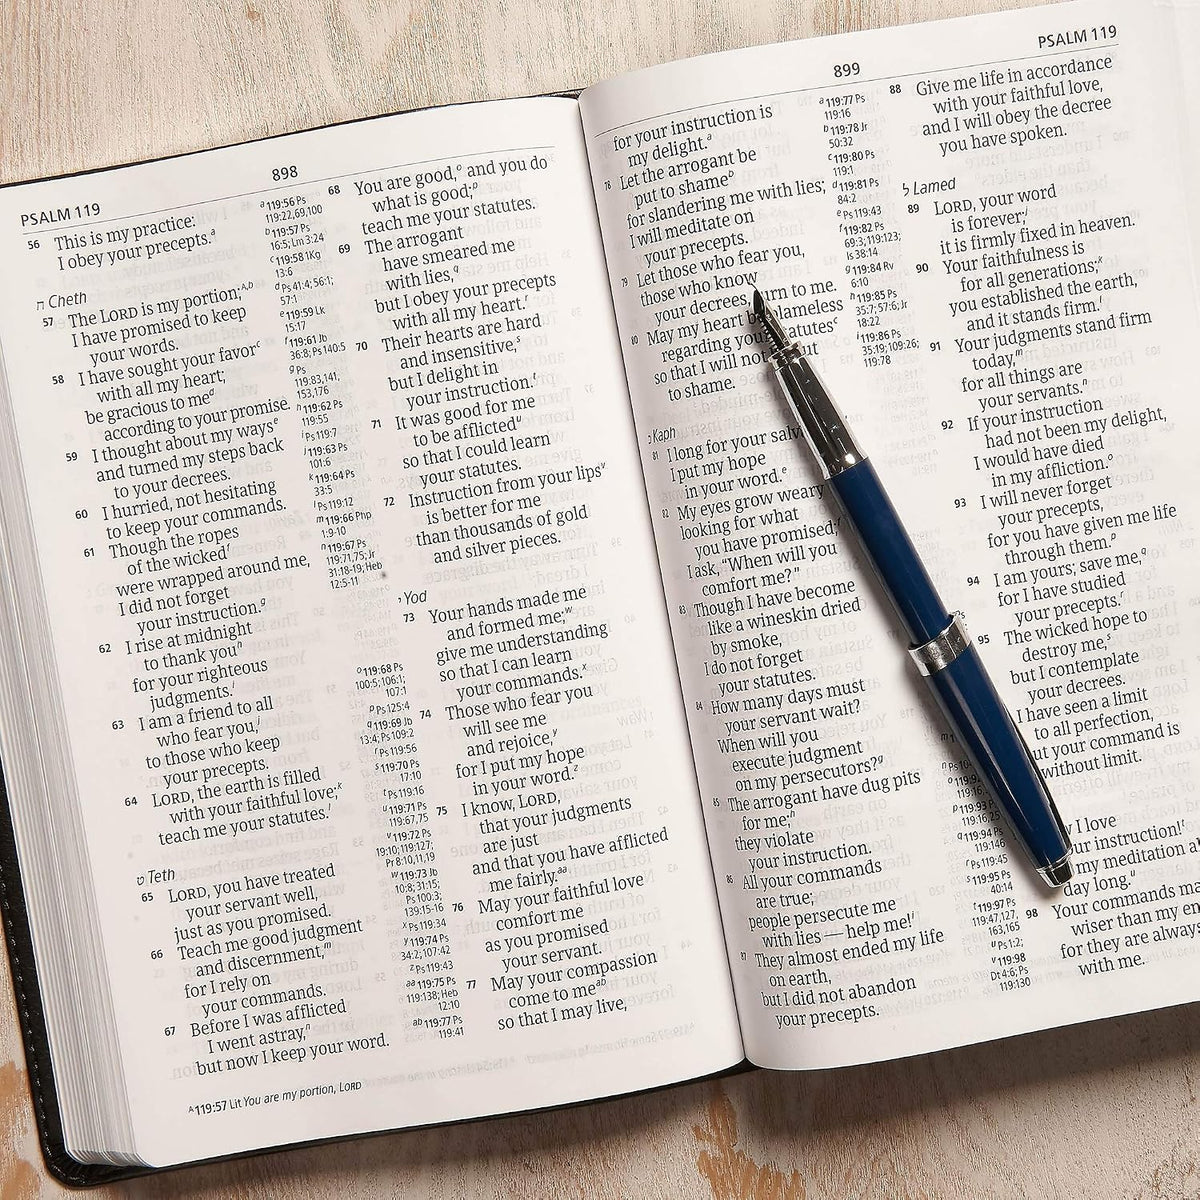 PSALM 119
898
56 This is my practice:
I obey your precepts.ᵃ
ח Cheth
57 The LORD is my portion;ᴬ,ᵇ
I have promised to keep
your words.
58 I have sought your favorᶜ
with all my heart;
be gracious to meᵈ
according to your promise.
59 I thought about my waysᵉ
and turned my steps back
to your decrees.
60 I hurried, not hesitating
to keep your commands.
61 Though the ropes
of the wickedᶠ
were wrapped around me,
I did not forget
your instruction.ᵍ
62 I rise at midnight
to thank youʰ
for your righteous
judgments.ⁱ
63 I am a friend to all
who fear you,ʲ
to those who keep
your precepts.
64 LORD, the earth is filled
with your faithful love;ᵏ
teach me your statutes.ˡ
ט Teth
65 LORD, you have treated
your servant well,
just as you promised.
66 Teach me good judgment
and discernment,ᵐ
for I rely on
your commands.
67 Before I was afflicted
I went astray,ⁿ
but now I keep your word.
ᵃ119:56 Ps
119:22,69,100
ᵇ119:57 Ps
16:5; Lm 3:24
ᶜ119:58 1Kg
13:6
ᵈPs 41:4; 56:1;
57:1
ᵉ119:59 Lk
15:17
ᶠ119:61 Jb
36:8; Ps 140:5
ᵍPs
119:83,141,
153,176
ʰ119:62 Ps
119:55
ⁱPs 119:7
ʲ119:63 Ps
101:6
ᵏ119:64 Ps
33:5
ˡPs 119:12
ᵐ119:66 Php
1:9-10
ⁿ119:67 Ps
119:71,75; Jr
31:18-19; Heb
12:5-11
ᵒ119:68 Ps
100:5; 106:1;
107:1
ᵖPs 125:4
𐞥119:69 Jb
13:4; Ps 109:2
ʳPs 119:56
ˢ119:70 Ps
17:10
ᵗPs 119:16
ᵘ119:71 Ps
119:67,75
ᵛ119:72 Ps
19:10; 119:127;
Pr 8:10,11,19
ʷ119:73 Jb
10:8; 31:15;
Ps 100:3;
139:15-16
ˣPs 119:34
ʸ119:74 Ps
34:2; 107:42
ᶻPs 119:43
ᵃᵃ119:75 Ps
119:138; Heb
12:10
ᵃᵇ119:77 Ps
119:41
68 You are good,ᵒ and you do
what is good;ᵖ
teach me your statutes.
69 The arrogant
have smeared me
with lies,𐞥
but I obey your precepts
with all my heart.ʳ
70 Their hearts are hard
and insensitive,ˢ
but I delight in
your instruction.ᵗ
71 It was good for me
to be afflictedᵘ
so that I could learn
your statutes.
72 Instruction from your lipsᵛ
is better for me
than thousands of gold
and silver pieces.
י Yod
73 Your hands made me
and formed me;ʷ
give me understanding
so that I can learn
your commands.ˣ
74 Those who fear you
will see me
and rejoice,ʸ
for I put my hope
in your word.ᶻ
75 I know, LORD,
that your judgments
are just
and that you have afflicted
me fairly.ᵃᵃ
76 May your faithful love
comfort me
as you promised
your servant.
77 May your compassion
come to meᵃᵇ
so that I may live,
ᴬ119:57 Lit You are my portion, LORD
899
PSALM 119
for your instruction is
my delight.ᵃ
78 Let the arrogant be
put to shameᵇ
for slandering me with lies;
I will meditate on
your precepts.
79 Let those who fear you,
those who know
your decrees, turn to me.
80 May my heart be blameless
regarding your statutesᶜ
so that I will not be put
to shame.
כ Kaph
81 I long for your salv
I put my hope
in your word.ᵉ
82 My eyes grow weary
looking for what
you have promised;ᶠ
I ask, "When will you
comfort me?"
83 Though I have become
like a wineskin dried
by smoke,
I do not forget
your statutes.
84 How many days must
your servant wait?
When will you
execute judgment
on my persecutors?ᵍ
85 The arrogant have dug pits
for me;ʰ
they violate
your instruction.
86 All your commands
are true;
people persecute me
with lies — help me!ⁱ
87 They almost ended my life
on earth,
but I did not abandon
your precepts.
ᵃ119:77 Ps
119:16
ᵇ119:78 Jr
50:32
ᶜ119:80 Ps
119:1
ᵈ119:81 Ps
84:2
ᵉPs 119:43
ᶠ119:82 Ps
69:3; 119:123;
Is 38:14
ᵍ119:84 Rv
6:10
ʰ119:85 Ps
35:7; 57:6; Jr
18:22
ⁱ119:86 Ps
35:19; 109:26;
119:78
119:16
ᵖ119:93 P
119:16,25
𐞥119:94 Ps
119:146
ʳPs 119:45
ˢ119:95 Ps
40:14
ᵗ119:97 Ps
119:47,127,
163,165
ᵘPs 1:2;
ᵛ119:98
Dt 4:6; Ps
119:130
88 Give me life in accordance
with your faithful love,
and I will obey the decree
you have spoken.
ל Lamed
89 LORD, your word
is forever;ʲ
it is firmly fixed in heaven.
90 Your faithfulness is
for all generations;ᵏ
you established the earth,
and it stands firm.ˡ
91 Your judgments stand firm
today,ᵐ
for all things are
your servants.ⁿ
92 If your instruction
had not been my delight,
I would have died
in my affliction.ᵒ
93 I will never forget
your precepts,
for you have given me life
through them.ᵖ
94 I am yours; save me,𐞥
for I have studied
your precepts.ʳ
95 The wicked hope to
destroy me,ˢ
but I contemplate
your decrees.
I have seen a limit
to all perfection,
ut your command is
without limit.
I love
ur instruction!ᵗ
my meditation al
day long.ᵘ
98 Your commands ma
wiser than my en
for they are always
with me.